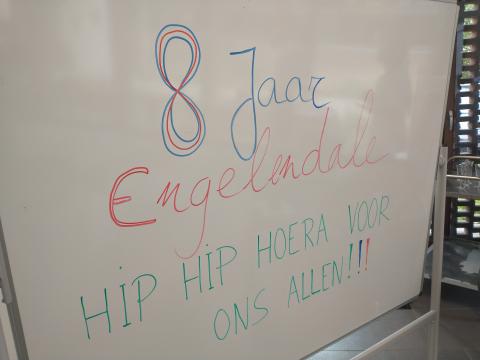 8 Jaar
Engelendale
HIP HIP HOERA VOOR
ONS ALLEN!!!